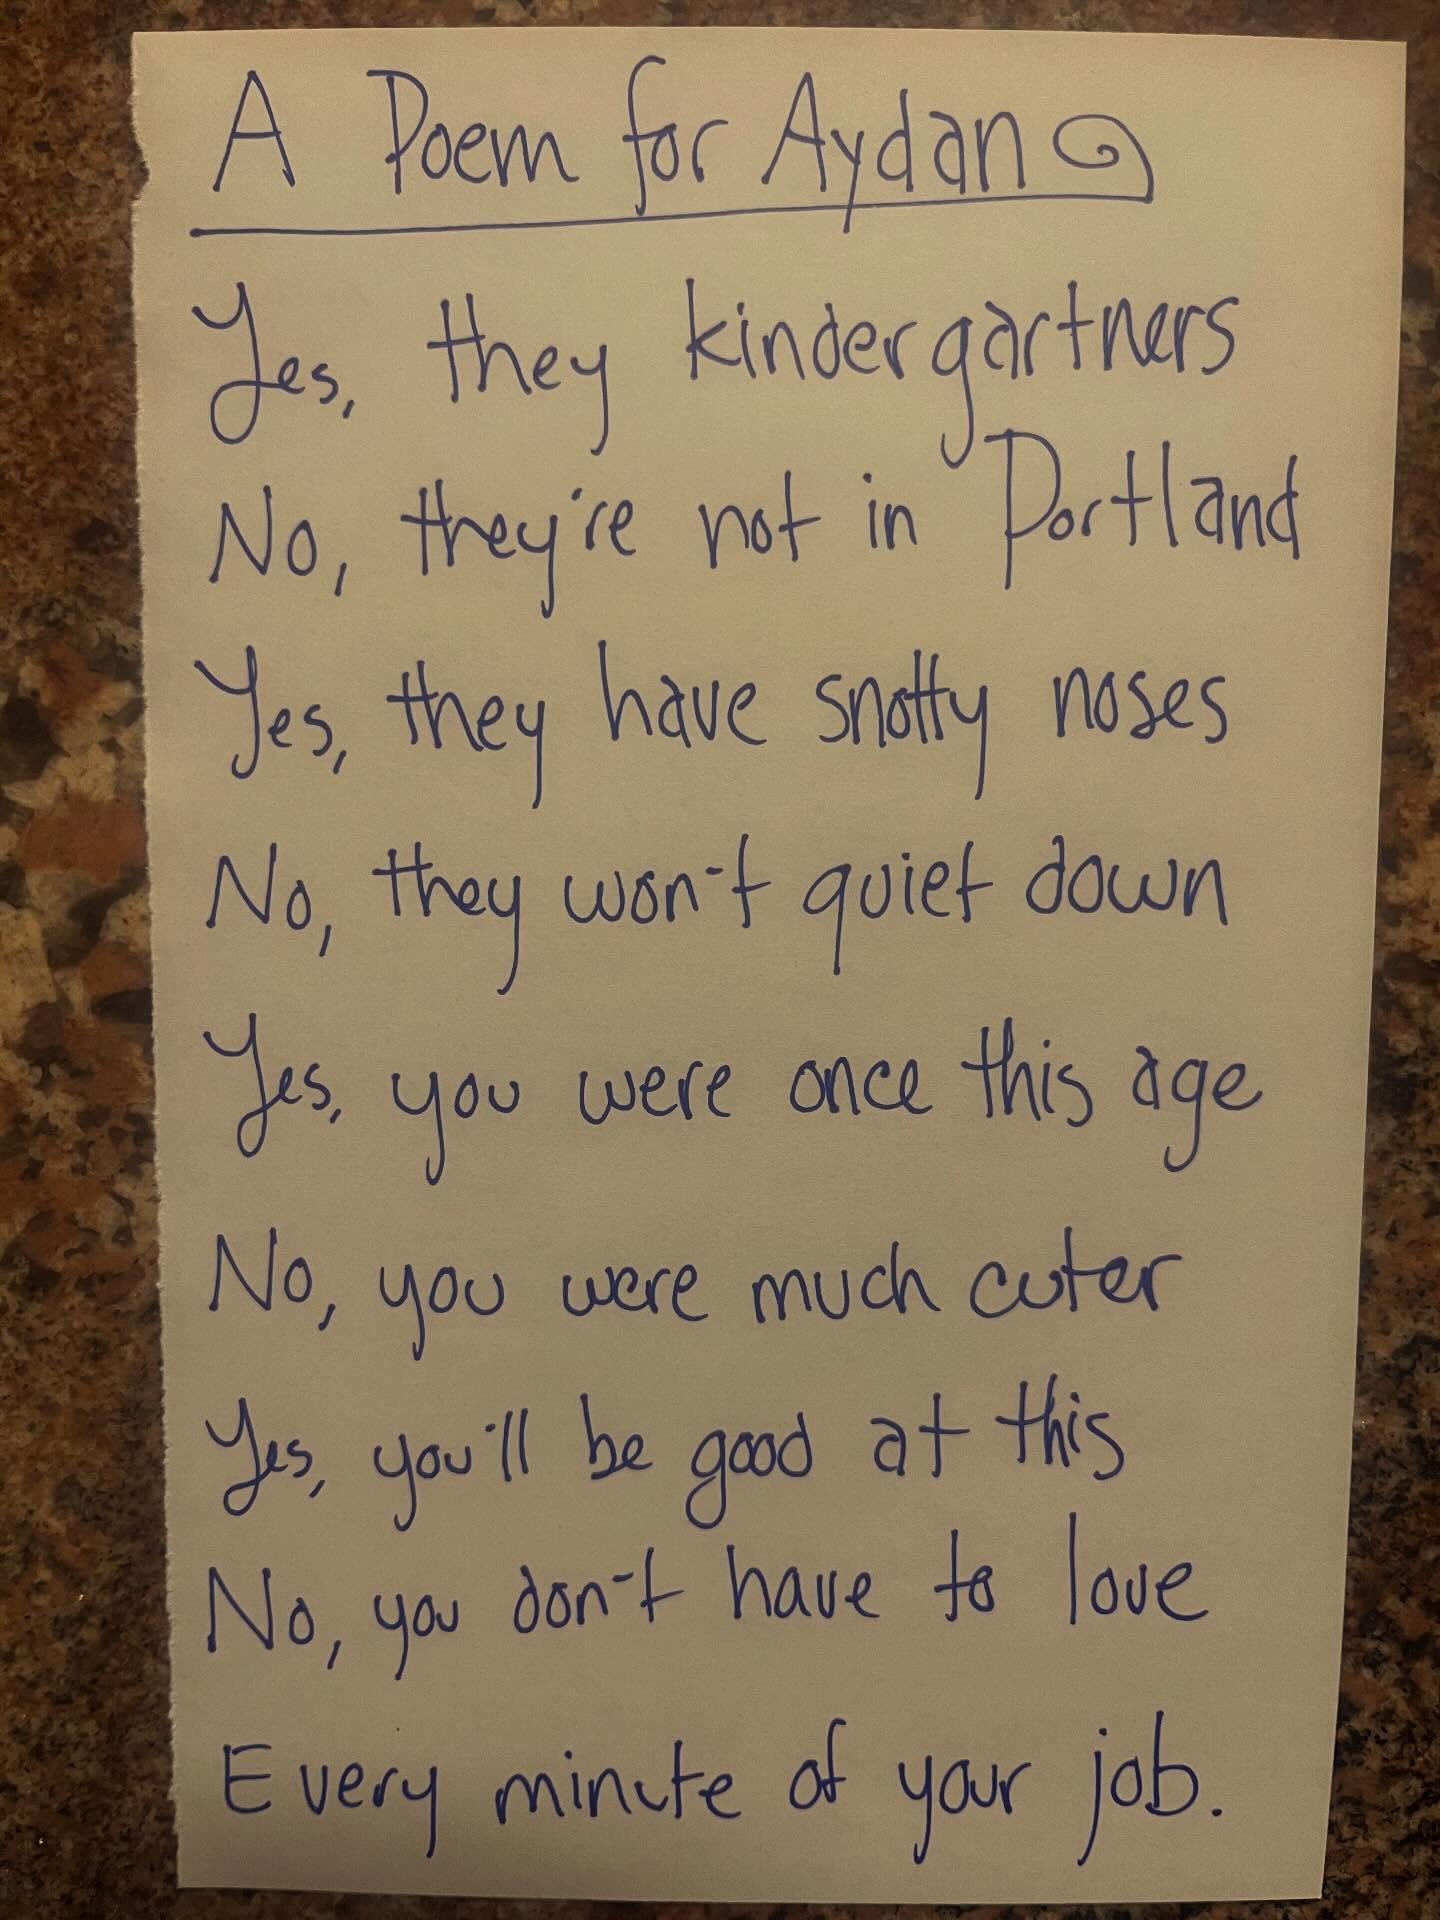 A Poem for Aydan
Yes, they kindergartners
No, they're not in Portland
Yes, they have snotty noses
No, they won't quiet down
Yes, you were once this age
No, you were much cuter
Yes, you'll be good at this
No, you don't have to love
Every minute of your job.